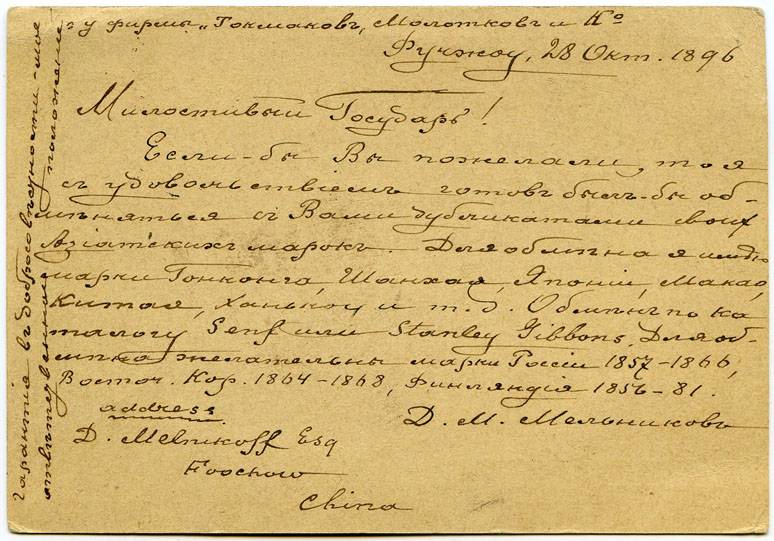 у фирмы „Токмаковъ, Молотковъ и Ко
Фучжоу, 28 Окт. 1896
Милостивый Государь!
Если-бы Вы пожелали, то я
съ удовольствіемъ готовъ былъ-бы об-
мѣняться съ Вами дубликатами своих
Азіатскихъ марокъ. Для обмѣна я имѣю
марки Гонконга, Шанхая, Японіи, Макао,
Китая, Ханькоу и т.д. Обмѣнъ по ка
талогу Senf или Stanley Gibbons. Для об-
мѣна желательны марки Россіи 1857-1866,
Восточ. Кор. 1864-1868, Финляндія 1856-81.
Д. М. Мельниковъ
address
D. Melnikoff Esq
Foochow
China
Гарантія въ добросовѣстности - мое
положеніе